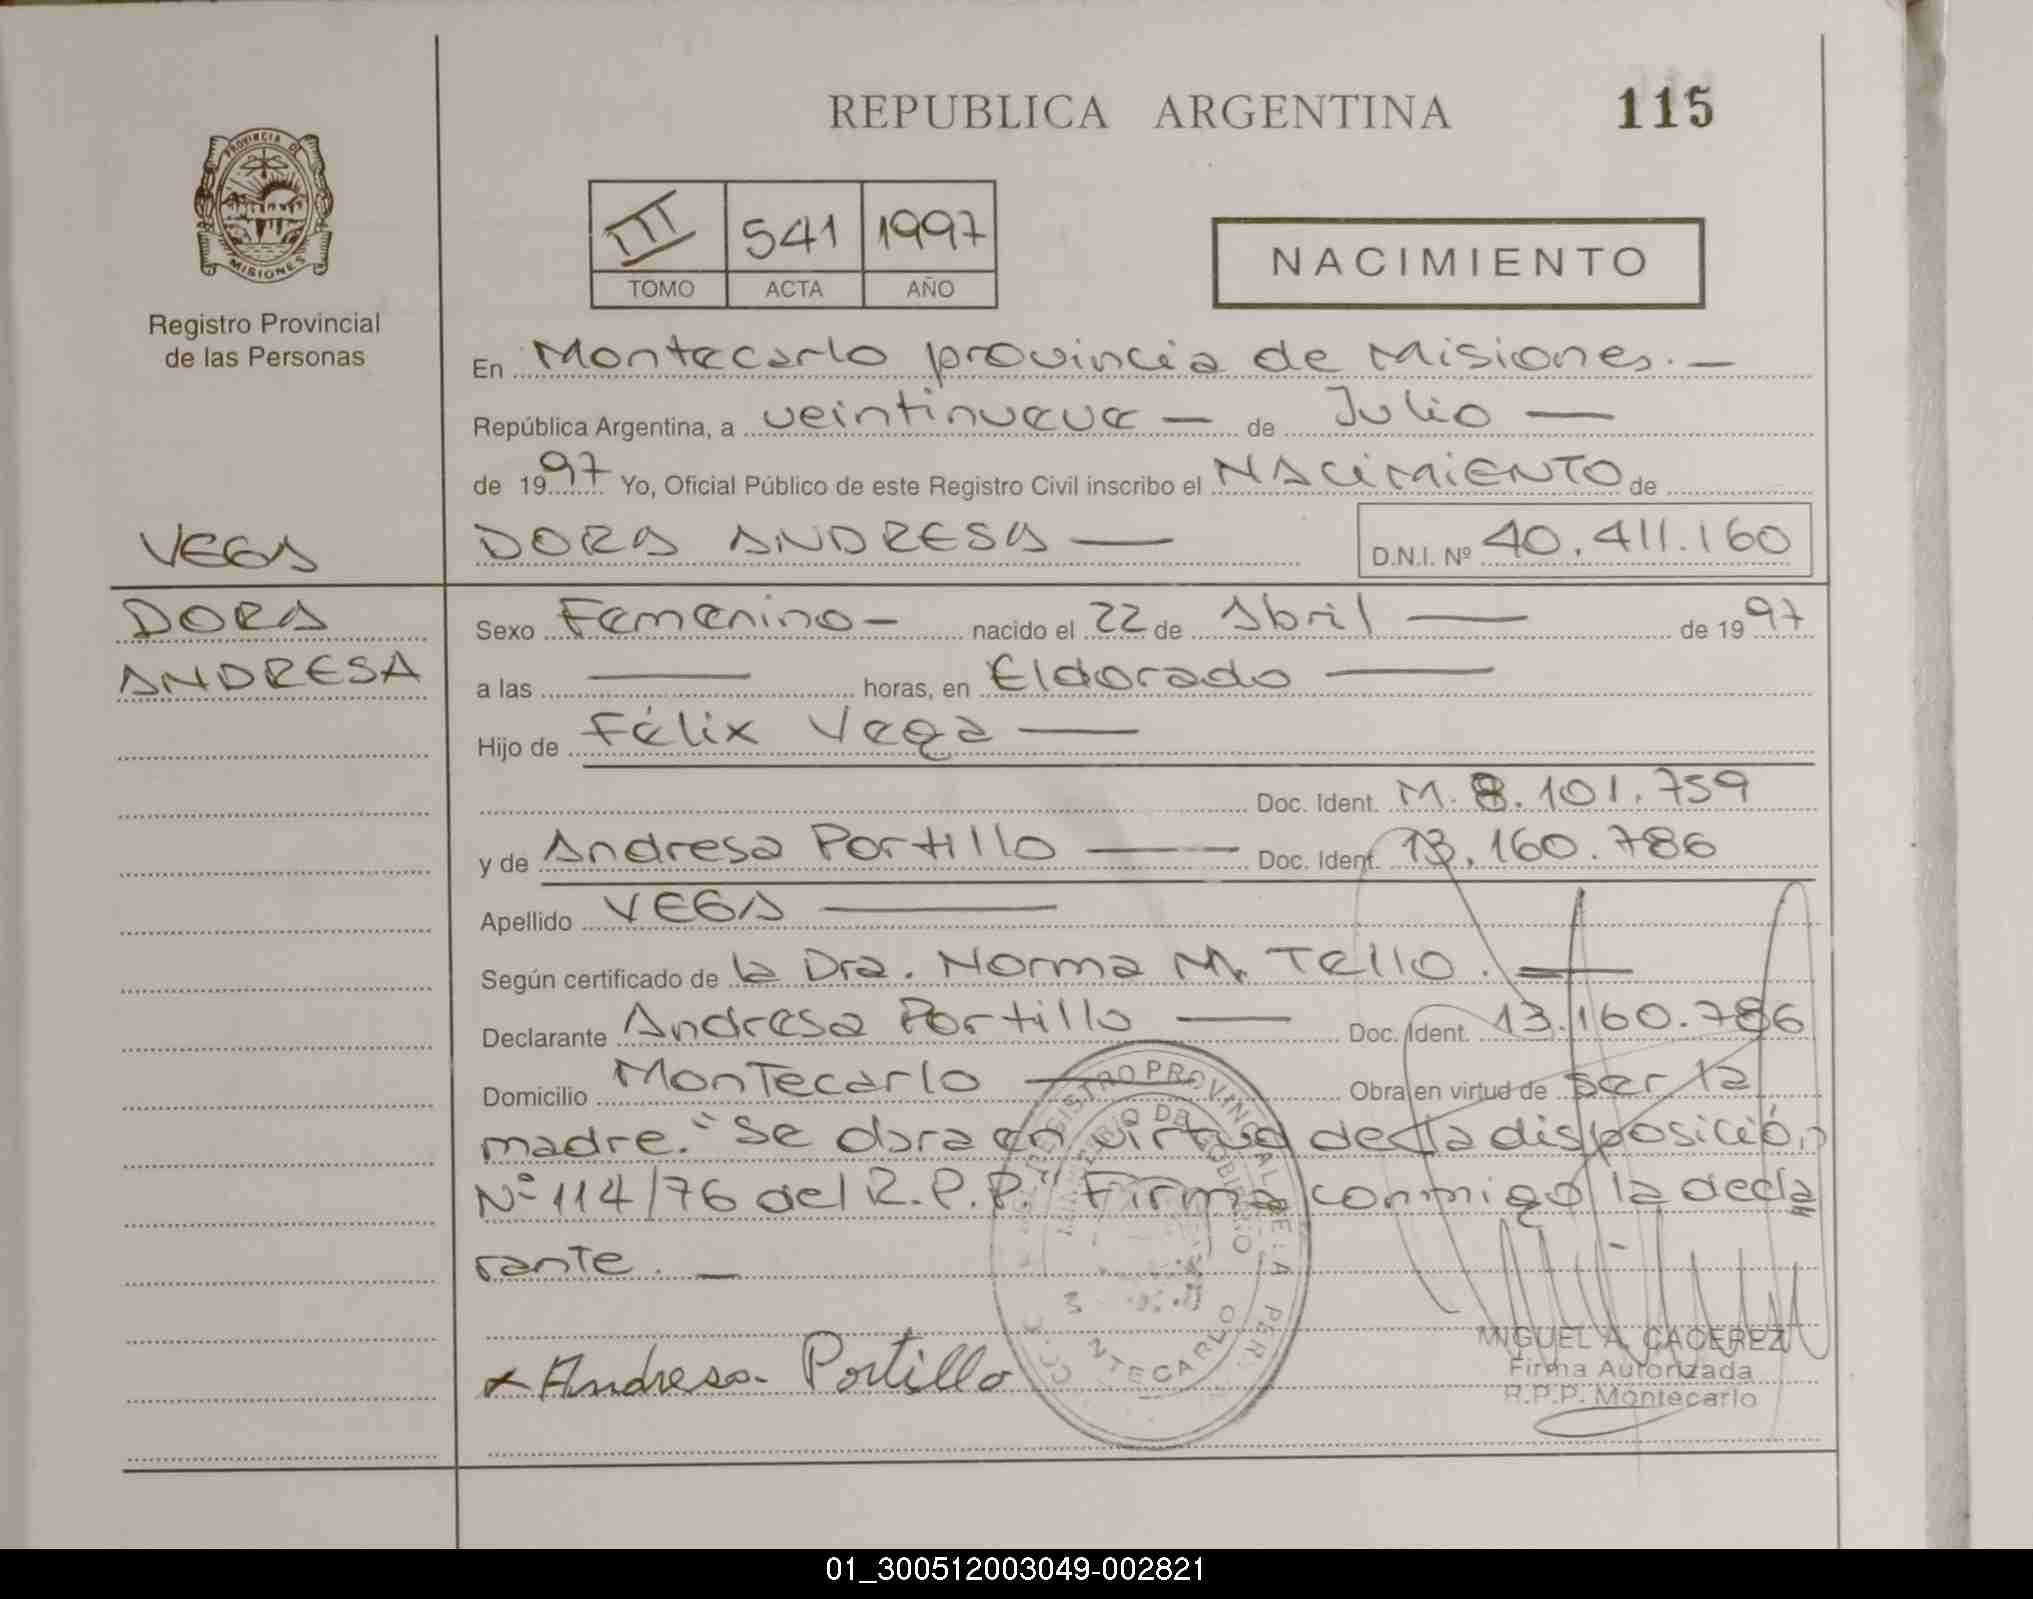 REPUBLICA ARGENTINA
115
PROVINCIA DE
MISIONES
Registro Provincial
de las Personas
III 541 1997
TOMO ACTA AÑO
NACIMIENTO
En Montecarlo provincia de Misiones. —
República Argentina, a veintinueve — de Julio —
de 1997 Yo, Oficial Público de este Registro Civil inscribo el NACIMIENTO de
DORA ANDRESA — D.N.I. Nº 40.411.160
VEGA
DORA
ANDRESA
Sexo Femenino - nacido el 22 de Abril — de 1997
a las — horas, en Eldorado —
Hijo de Félix Vega —
Doc. Ident. M. 8.101.759
y de Andresa Portillo — Doc. Ident. 13.160.786
Apellido VEGA —
Según certificado de la Dra. Norma M. Tello. —
Declarante Andresa Portillo — Doc. Ident. 13.160.786
Domicilio Montecarlo — Obra en virtud de ser la
madre. "Se obra en virtud de la disposición
Nº 114/76 del R.P.P." Firma conmigo la decla
rante. —
x Andresa Portillo
REGISTRO PROVINCIAL DE LA PER.
MINISTERIO DE GOBIERNO
MONTECARLO
MIGUEL A. CACEREZ
Firma Autorizada
R.P.P. Montecarlo
01_300512003049-002821